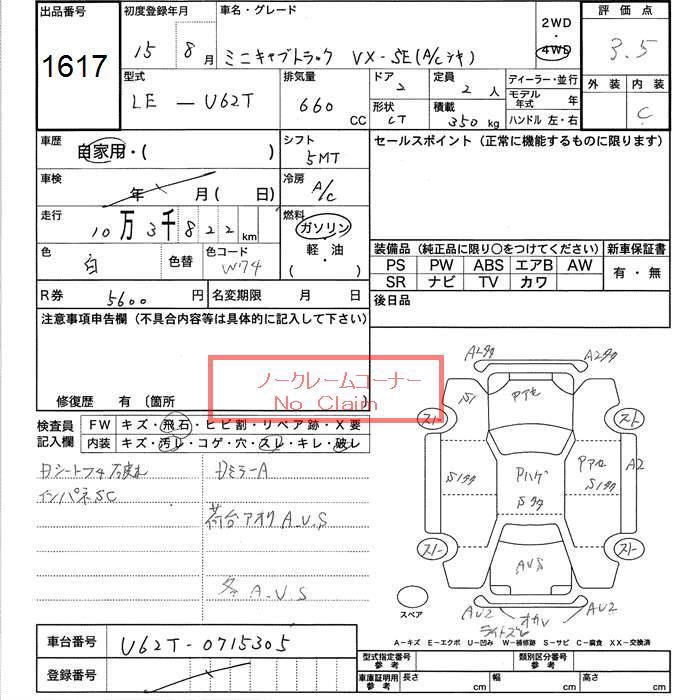 出品番号
1617
初度登録年月
15年 8月
車名・グレード
ミニキャブトラック VX-SE(A/Cツキ)
2WD
4WD
評価点
3.5
外装 内装
C
型式
LE-U62T
排気量
660 CC
ドア 2
形状 CT
定員 2 人
積載 350 kg
ディーラー・並行
モデル年式 年
ハンドル 左・右
車歴
自家用・( )
シフト
5MT
セールスポイント(正常に機能するものに限ります)
車検
年 月( 日)
冷房
A/C
走行
10万3千822km
燃料
ガソリン
軽・油
( )
色
白
色替
色コード
W74
装備品(純正品に限り○をつけてください)
新車保証書
PS PW ABS エアB AW
SR ナビ TV カワ
有・無
後日品
R券 5600 円
名変期限 月 日
注意事項申告欄(不具合内容等は具体的に記入して下さい)
ノークレームコーナー
No Claim
修復歴 有 〔箇所
検査員記入欄
FW キズ・飛石・ヒビ割・リペア跡・X要
内装 キズ・汚レ・コゲ・穴・スレ・キレ・破レ
インパネSC
DミラーA
荷台アオリA.U.S
A.U.S
スペア
A2 A2
S1
Pアセ
スト スト
Pハゲ
A2
AUS
スト スト
AU2 AU2
A-キズ E-エクボ U-凹み W-補修跡 S-サビ C-腐食 XX-交換済
車台番号
U62T-0715305
登録番号
型式指定番号 参考
類別区分番号 参考
車庫証明用 参考
長さ cm 幅 cm 高さ cm